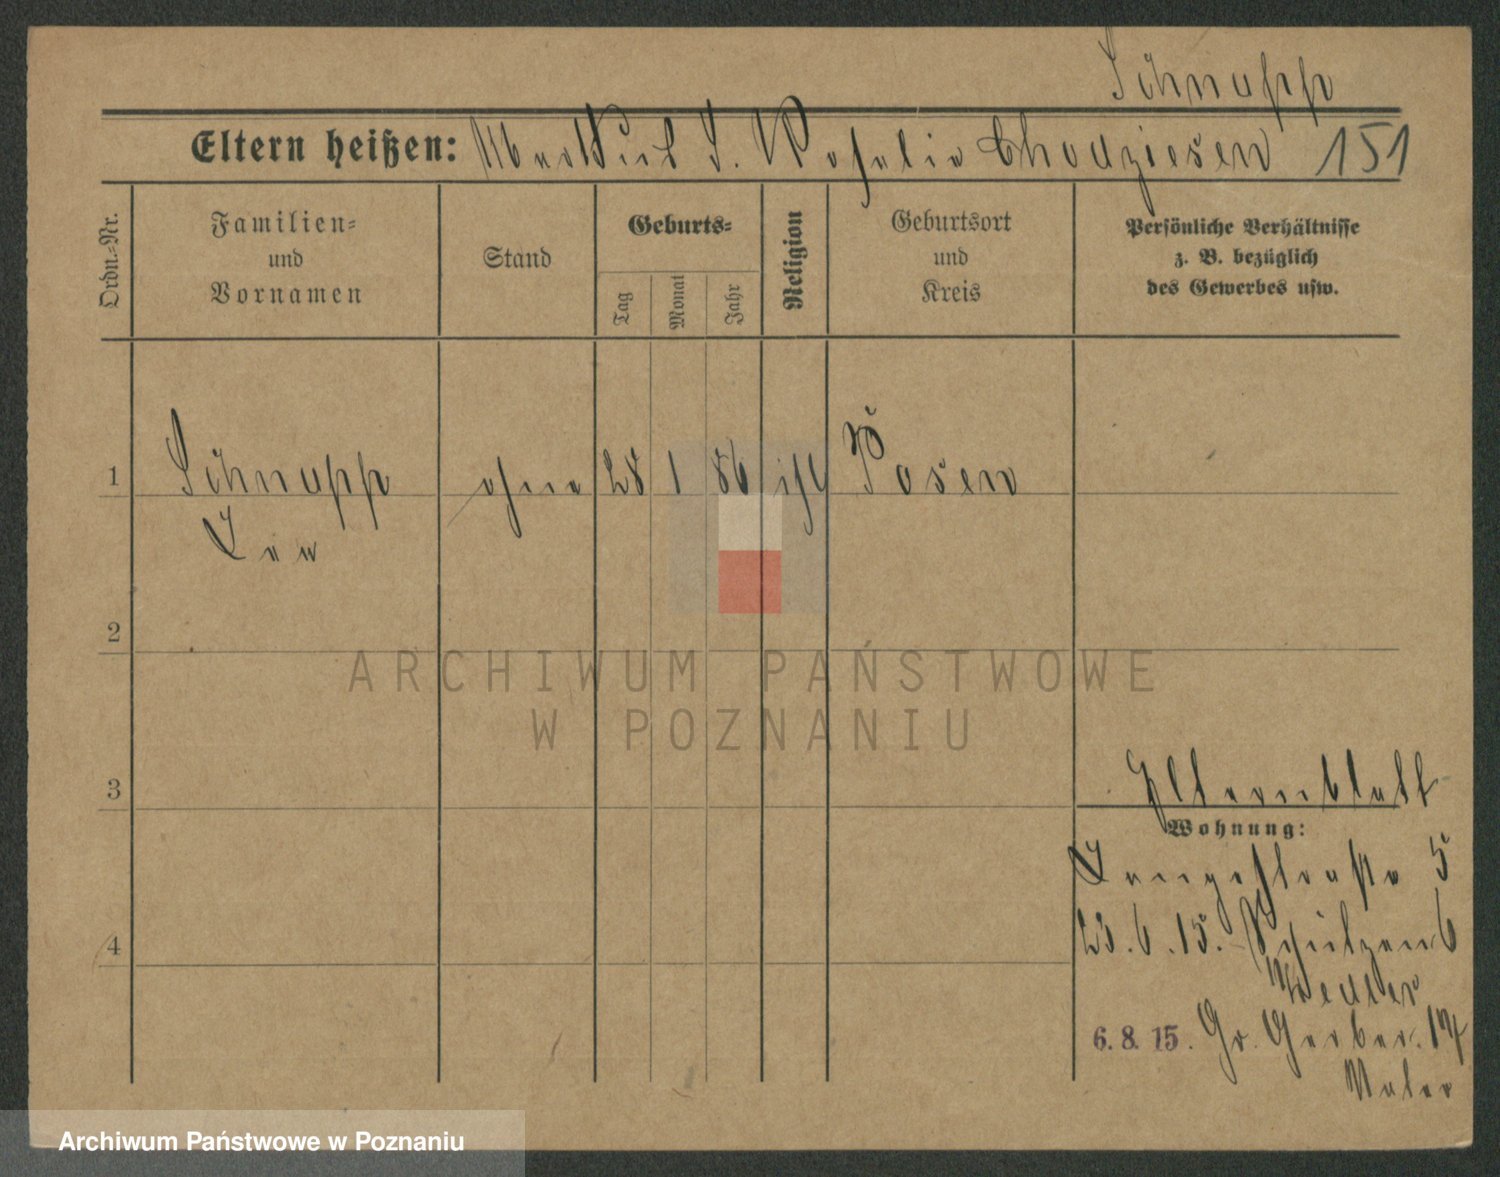 Schnupp
Eltern heißen: S. Rosalie Chodziesen 151
Ordn.-Nr.
Familien-
und
Vornamen
Stand
Geburts-
Tag
Monat
Jahr
Religion
Geburtsort
und
Kreis
Persönliche Verhältnisse
z. B. bezüglich
des Gewerbes usw.
1 Schnupp ohne 28 1 86 Posen
2
ARCHIWUM PAŃSTWOWE
W POZNANIU
3
Elternblatt
Wohnung:
Langestraße 5
4
23.6.15. Schützen 6
6. 8. 15. Gr. Gerber. 17
Archiwum Państwowe w Poznaniu